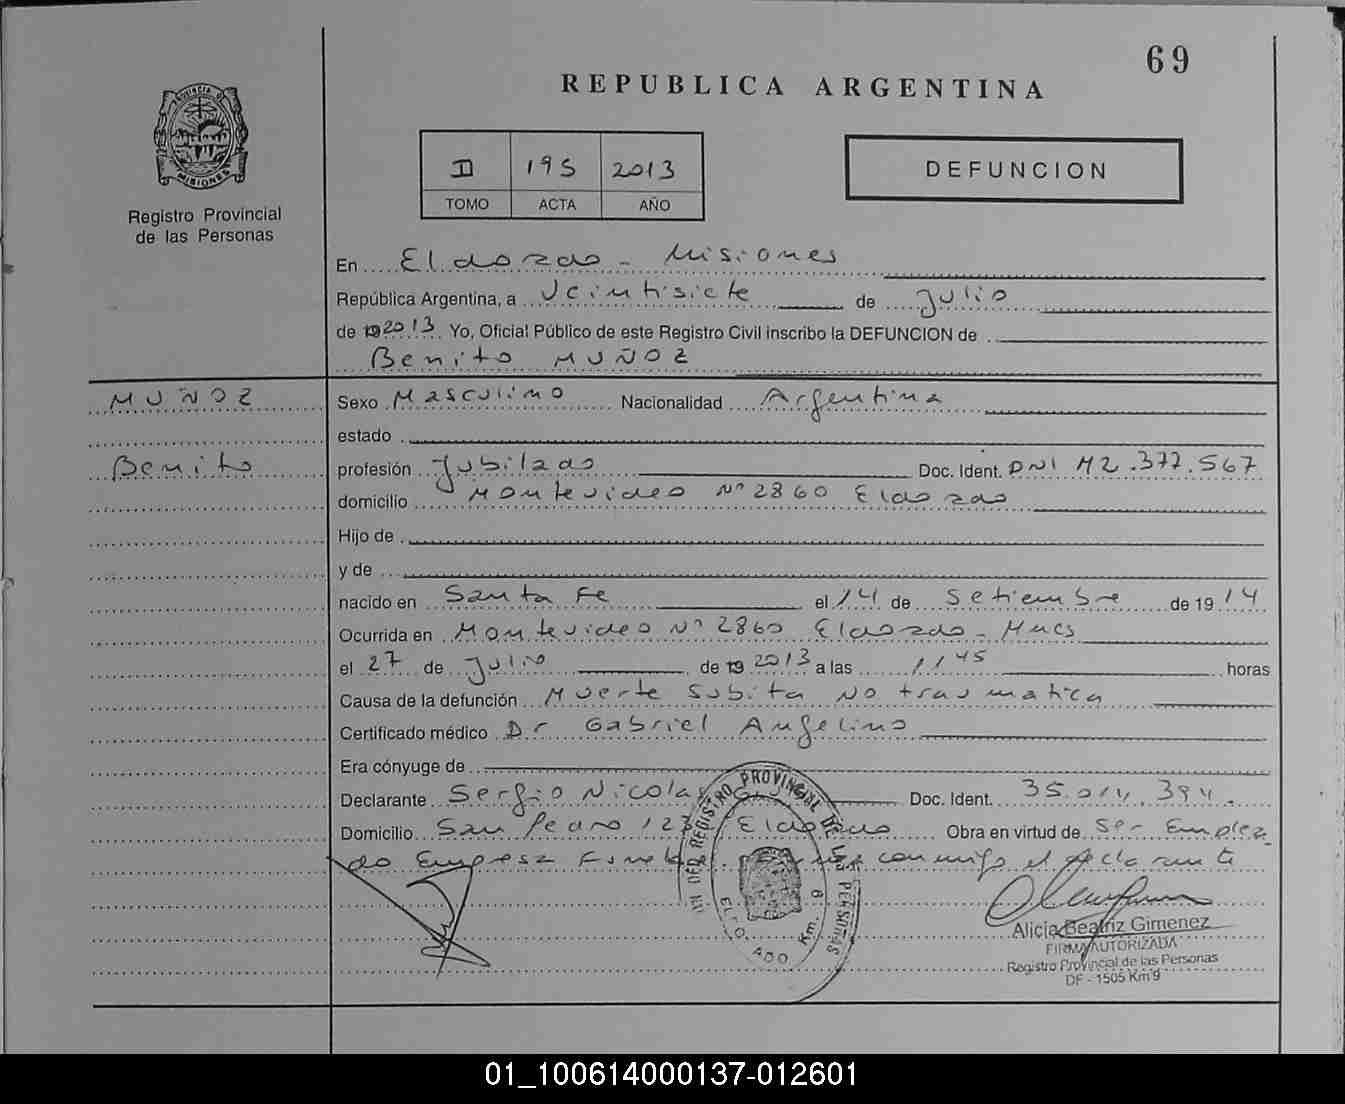 69
REPUBLICA ARGENTINA
PROVINCIA DE MISIONES
Registro Provincial
de las Personas
II 195 2013
TOMO ACTA AÑO
DEFUNCION
En Eldorado - Misiones
República Argentina, a Veintisiete de Julio
de 19 2013 Yo, Oficial Público de este Registro Civil inscribo la DEFUNCION de
Benito MUÑOZ
MUÑOZ
Benito
Sexo Masculino Nacionalidad Argentina
estado
profesión Jubilado Doc. Ident. DNI M2.377.567
domicilio Montevideo Nº 2860 Eldorado
Hijo de
y de
nacido en Santa Fe el 14 de Setiembre de 1914
Ocurrida en Montevideo Nº 2860 Eldorado - Mnes
el 27 de Julio de 19 2013 a las 11 45 horas
Causa de la defunción Muerte Subita No traumatica
Certificado médico Dr Gabriel Angelino
Era cónyuge de
Declarante Sergio Nicolas Doc. Ident. 35.014.394.
Domicilio San Pedro Eldorado Obra en virtud de Ser Emplea
do Empresa conmigo el declarante
REGISTRO PROVINCIAL DE LAS PERSONAS
ELDORADO Km. 9
Alicia Beatriz Gimenez
FIRMA AUTORIZADA
Registro Provincial de las Personas
DF - 1505 Km 9
01_100614000137-012601